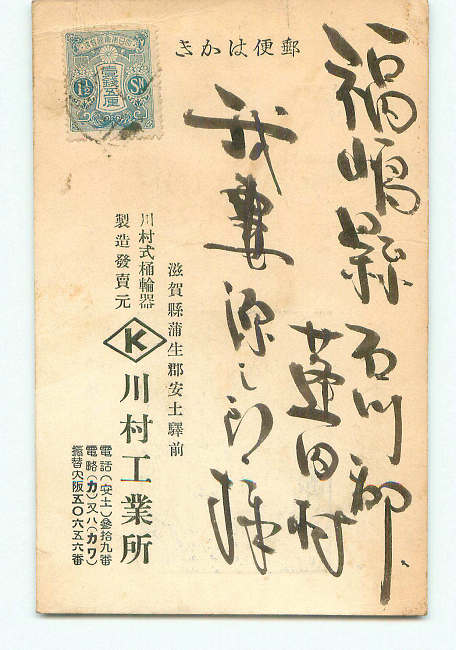 郵便はかき
壹錢五厘
1½ SN
福嶋縣石川郡
蓬田村
我妻 様
滋賀縣蒲生郡安土驛前
川村式桶輪器
製造發賣元
K
川村工業所
電話(安土)參拾九番
電略(カ)又ハ(カワ)
振替大阪五〇六五六番